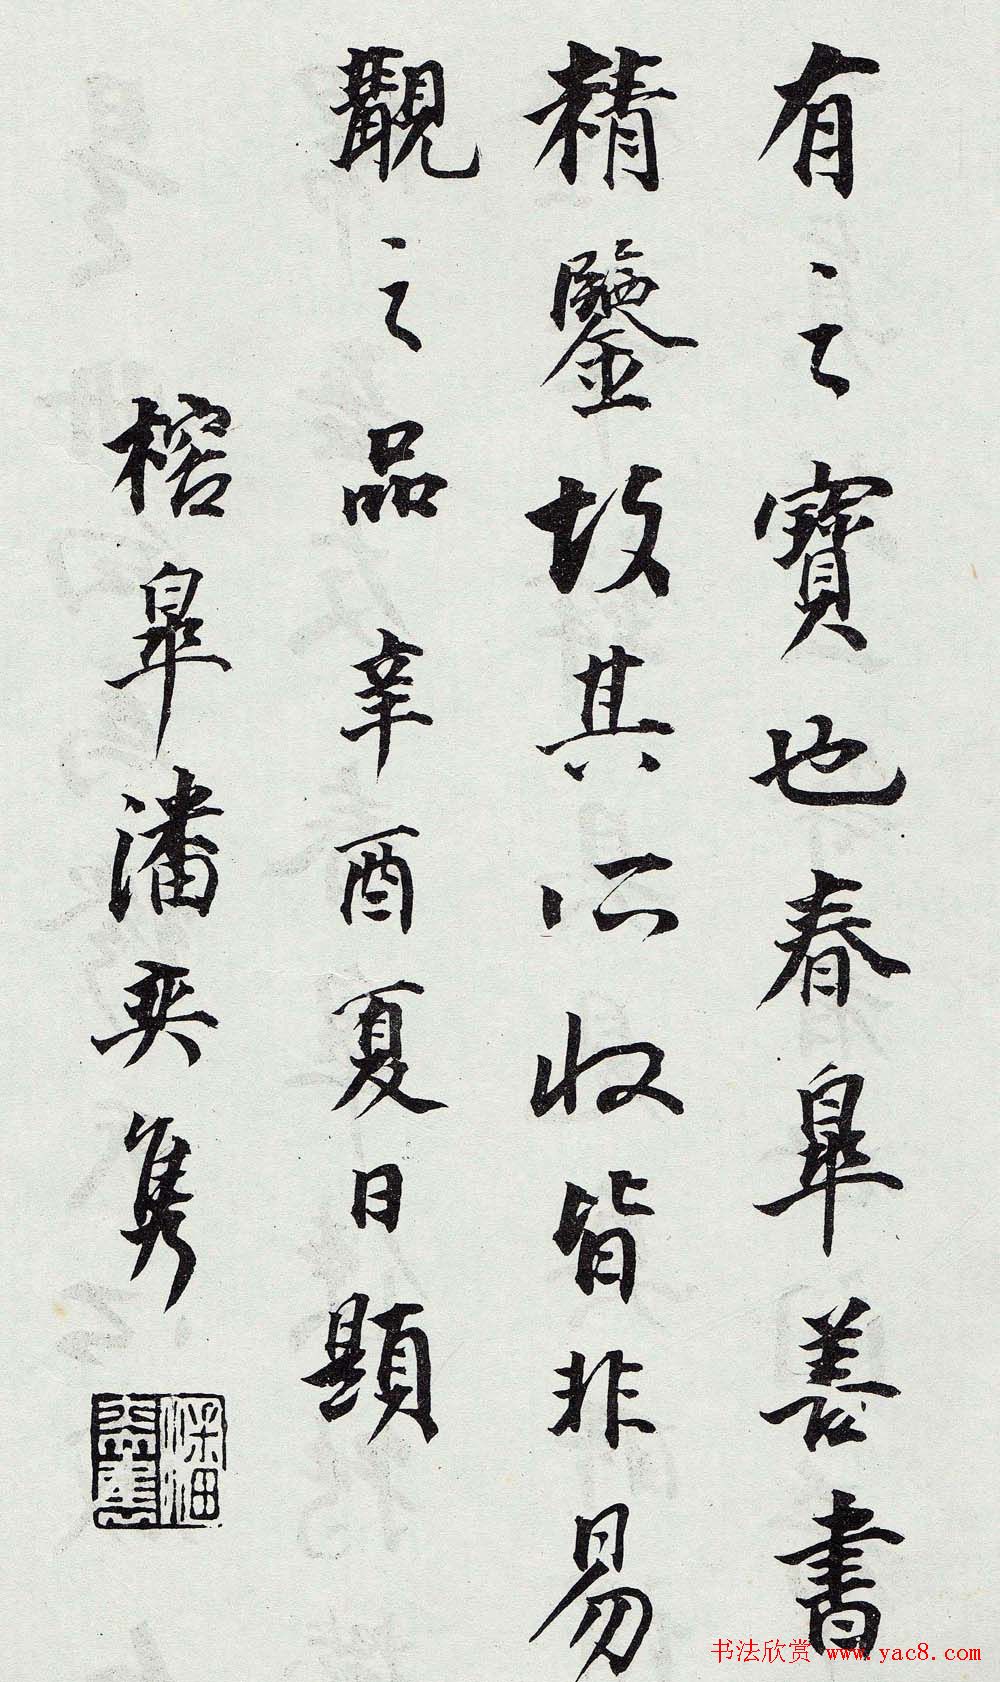 有之寶也春皐善書
精鑒故其所收皆非易
觀之品辛酉夏日題
榕皐潘奕雋
潘奕雋
书法欣赏 www.yac8.com